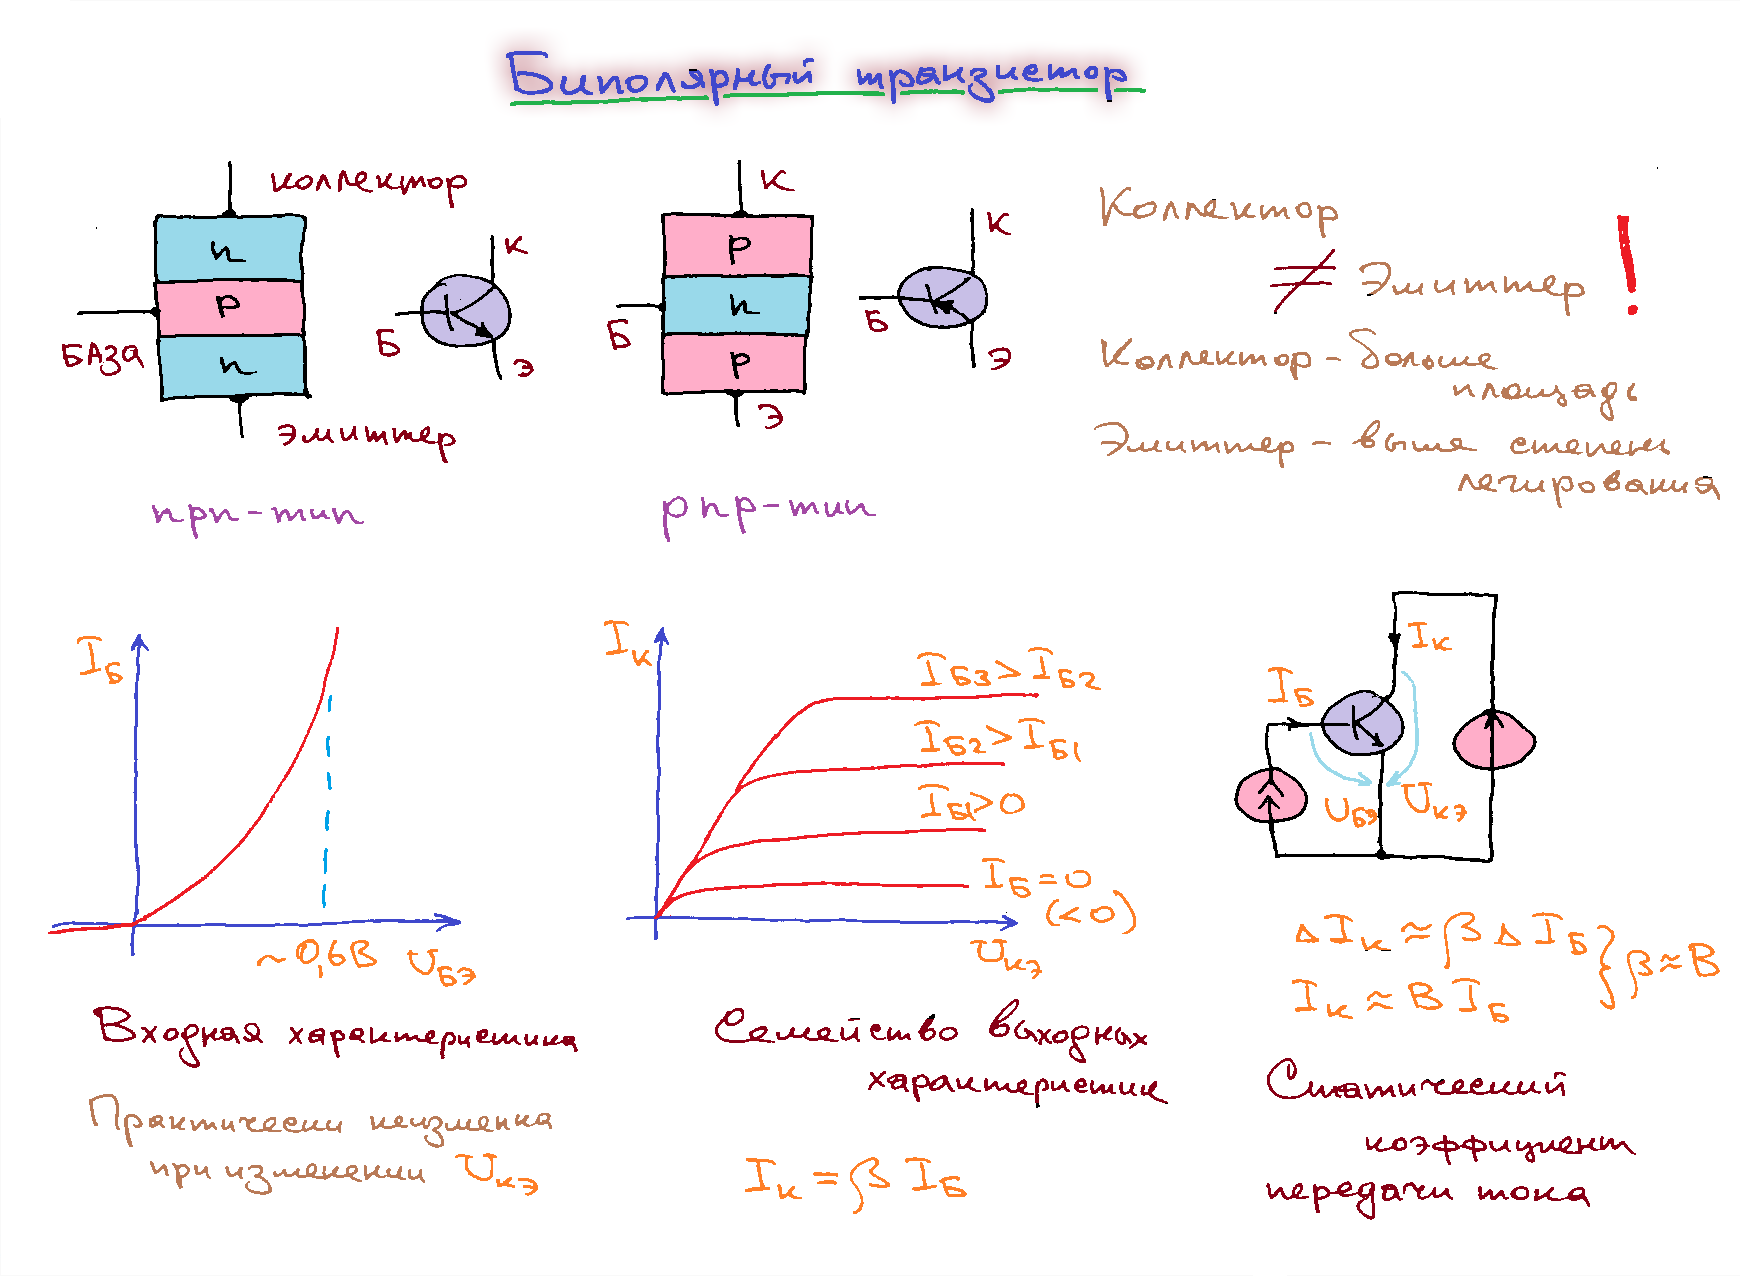 Биполярный транзистор
коллектор
n
p
n
БАЗА
эмиттер
К
Б
Э
npn-тип
К
p
n
p
Б
Э
К
Б
Э
pnp-тип
Коллектор
≠ Эмиттер !
Коллектор - больше
площадь
Эмиттер - выше степень
легирования
I_Б
~0,6В U_БЭ
Входная характеристика
Практически неизменна
при изменении U_КЭ
I_К
I_Б3 > I_Б2
I_Б2 > I_Б1
I_Б1 > 0
I_Б = 0
(< 0)
U_КЭ
Семейство выходных
характеристик
I_К = β I_Б
I_К
I_Б
U_БЭ U_КЭ
Δ I_К ≈ β Δ I_Б
I_К ≈ B I_Б
} β ≈ B
Статический
коэффициент
передачи тока